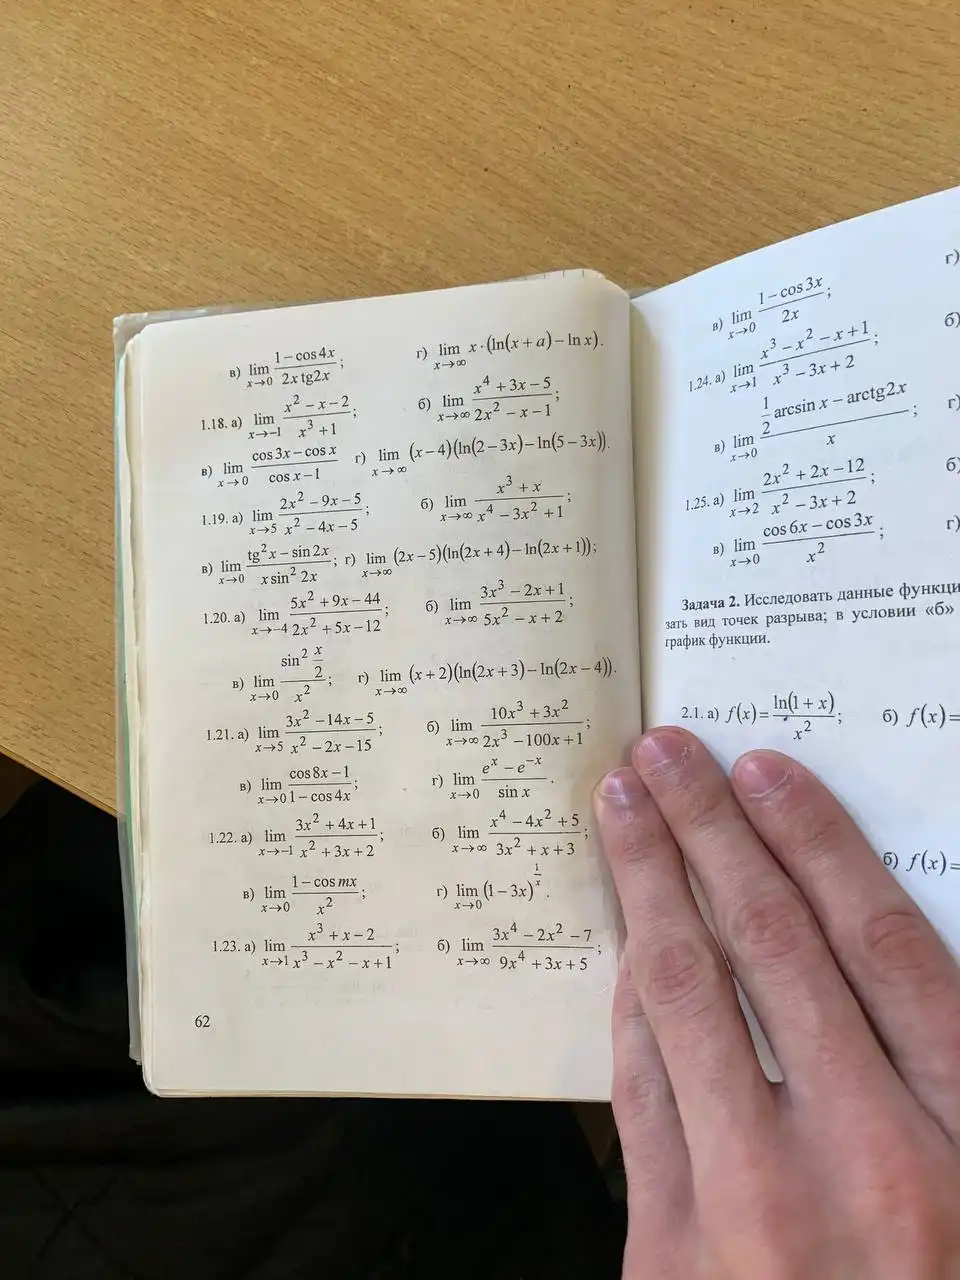 в) lim x→0 (1 − cos 4x)/(2x tg2x);
г) lim x→∞ x · (ln(x + a) − ln x).
1.18. а) lim x→−1 (x² − x − 2)/(x³ + 1);
б) lim x→∞ (x⁴ + 3x − 5)/(2x² − x − 1);
в) lim x→0 (cos 3x − cos x)/(cos x − 1)
г) lim x→∞ (x − 4)(ln(2 − 3x) − ln(5 − 3x)).
1.19. а) lim x→5 (2x² − 9x − 5)/(x² − 4x − 5);
б) lim x→∞ (x³ + x)/(x⁴ − 3x² + 1);
в) lim x→0 (tg²x − sin 2x)/(x sin² 2x);
г) lim x→∞ (2x − 5)(ln(2x + 4) − ln(2x + 1));
1.20. а) lim x→−4 (5x² + 9x − 44)/(2x² + 5x − 12);
б) lim x→∞ (3x³ − 2x + 1)/(5x² − x + 2);
в) lim x→0 (sin² x/2)/(x²);
г) lim x→∞ (x + 2)(ln(2x + 3) − ln(2x − 4)).
1.21. а) lim x→5 (3x² − 14x − 5)/(x² − 2x − 15);
б) lim x→∞ (10x³ + 3x²)/(2x³ − 100x + 1);
в) lim x→0 (cos 8x − 1)/(1 − cos 4x);
г) lim x→0 (eˣ − e⁻ˣ)/(sin x).
1.22. а) lim x→−1 (3x² + 4x + 1)/(x² + 3x + 2);
б) lim x→∞ (x⁴ − 4x² + 5)/(3x² + x + 3);
в) lim x→0 (1 − cos mx)/(x²);
г) lim x→0 (1 − 3x)^(1/x).
1.23. а) lim x→1 (x³ + x − 2)/(x³ − x² − x + 1);
б) lim x→∞ (3x⁴ − 2x² − 7)/(9x⁴ + 3x + 5);
62
г)
в) lim x→0 (1 − cos 3x)/(2x);
б)
1.24. а) lim x→1 (x³ − x² − x + 1)/(x³ − 3x + 2);
в) lim x→0 (1/2 arcsin x − arctg2x)/(x);
г)
1.25. а) lim x→2 (2x² + 2x − 12)/(x² − 3x + 2);
б)
в) lim x→0 (cos 6x − cos 3x)/(x²);
г)
Задача 2. Исследовать данные функци
зать вид точек разрыва; в условии «б»
график функции.
2.1. а) f(x) = (ln(1 + x))/(x²);
б) f(x) =
б) f(x) =